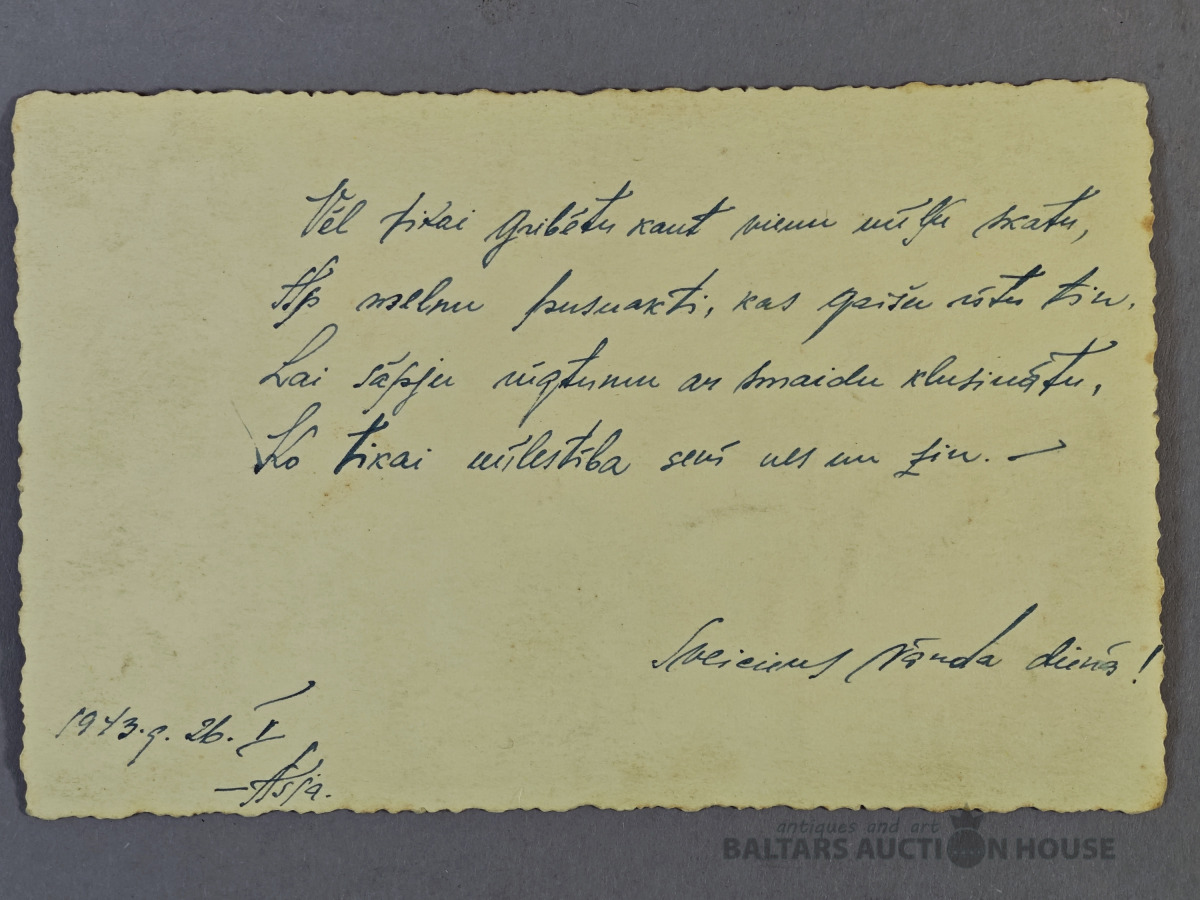 Vēl tikai gribētu kaut vienu mīļu skatu,
Ap melnu pusnakti, kas gaišu rītu tin.
Lai sāpju rūgtumu ar smaidu klusinātu,
Ko tikai mīlestība sevī nes un zin. —
Sveiciens Vārda dienā!
1943.g. 26. V
— Asja.
antiques and art
BALTARS AUCTION HOUSE